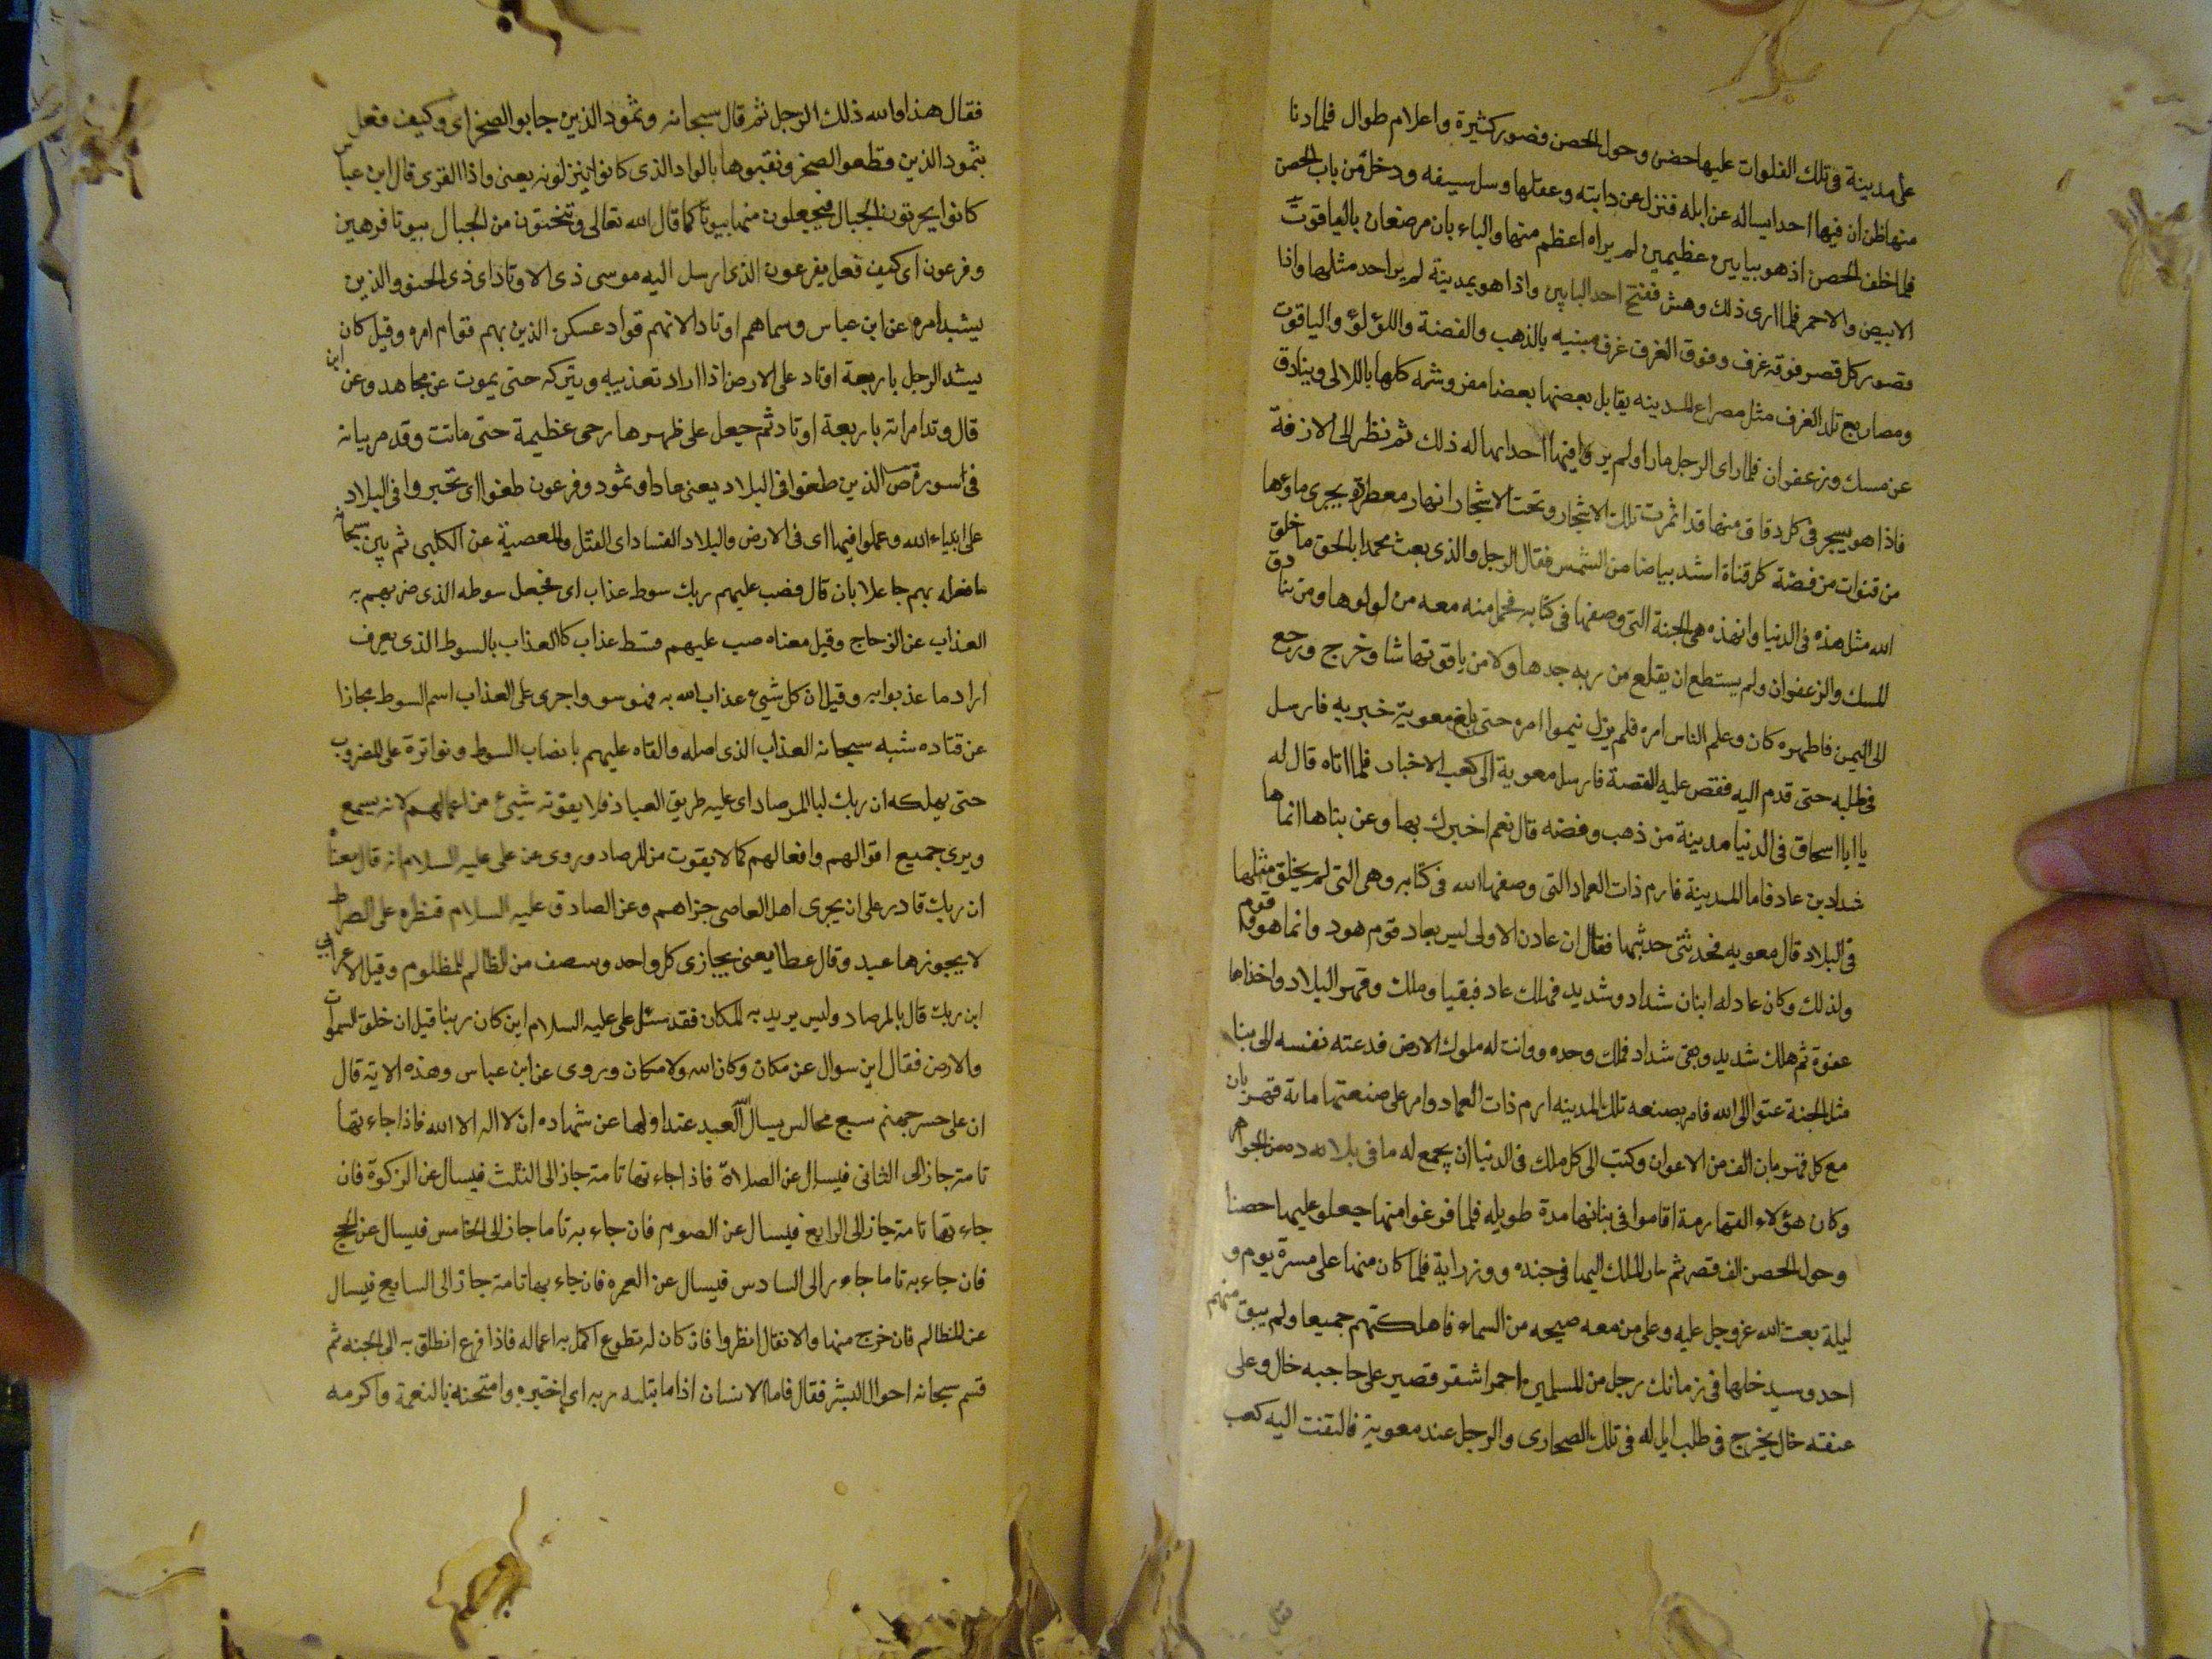 على مدينة في تلك الفلوات عليها حضن وحول الحصن قصور كثيرة واعلام طوال فلما دنا
منها ظن ان فيها احدا يساله عن ابله فنزل عن دابته وعقلها وسل سيفه ودخل من باب الحصن
فلما خلف الحصن اذ هو ببابين عظيمين لم يراه اعظم منها والباء بان مرصعان بالياقوت
الابيض والاحمر فلما ارى ذلك وهش ففتح احد البابين واذا هو بمدينة لم ير احد مثلها واذا
قصور كل قصر فوقه غرف وفوق الغرف غرف مبنيه بالذهب والفضة واللؤلؤ والياقوت
ومصاريع تلك الغرف مثل مصراع المدينه يقابل بعضها بعضا مفروشه كلها باللالى وبنادق
عن مسك وزعفران فلما راى الرجل ما راو لم ير فيها احدا هاله ذلك ثم نظر الى الازفة
فاذا هو بسجر في كل دقاق منها قد اثمرت تلك الاشجار وتحت الاشجار انهار معطرة يجرى ماؤها
من قنوات من فضة كل قناة اشد بياضا من الشمس فقال الرجل والذى بعث محمدا بالحق ما خلق
الله مثل هذه في الدنيا وان هذه هى الجنة التي وصفها في كتابه فحمل منه معه من لولوها ومن بنادق
المسك والزعفران ولم يستطع ان يقلع من زبرجدها ولا من ياقوتها شا وخرج ورجع
الى اليمن فاظهره كان وعلم الناس امره فلم يزل نيموا امره حتى بلغ معوية خبريه فارسل
في طلبه حتى قدم اليه فقص عليه القصة فارسل معوية الى كعب الاخبار فلما اتاه قال له
يا ابا اسحاق في الدنيا مدينة من ذهب وفضه قال نعم اخبرك بها وعن بناها انما ها
شداد بن عاد فاما المدينة فارم ذات العماد التي وصفها الله في كتابه وهى التي لم يخلق مثلها
في البلاد قال معويه فحدثنى حديثها فقال ان عادن الاولى ليس بعاد قوم هود وانما هو قوم
ولذلك وكان عاد له ابنان شداد وشديد فهلك عاد فبقيا وملك وقهر البلاد واخذاها
عنوة ثم هلك شديد وبقى شداد فملك وحده ووانت له ملوك الارض فدعته نفسه الى بنا
مثل الجنة عتوا الى الله فامر بصنعه تلك المدينه ارم ذات العماد وامر على صنعتها مائة قهربان
مع كل قهربان الف من الاعوان وكتب الى كل ملك في الدنيا ان يجمع له ما في بلاده من الجواهر
وكان هؤلاء القهارمة اقاموا في بنائها مدة طويله فلما فرغوا منها جعلو عليها حصنا
وحول الحصن الف قصر ثم سار الملك اليها في جنده ووزرايه فلما كان منها على مسرة يوم و
ليلة بعث الله عز وجل عليه وعلى من معه صيحه من السماء فاهلكتهم جميعا ولم يبق منهم
احد وسيدخلها في زمانك رجل من المسلمين احمر اشقر قصير على حاجبه خال وعلى
عنقه خال يخرج في طلب ابل له في تلك الصحارى والرجل عند معوية فالتفت اليه كعب
فقال هذا والله ذلك الرجل ثم قال سبحانه وثمود الذين جابو الصخر اى وكيف فعل
بثمود الذين قطعوا الصخر ونقبوها بالواد الذى كانوا ينزلونه يعنى واذا القرى قال ابن عباس
كانوا يحرثون الجبال فيجعلون منها بيوتا كما قال الله تعالى وتنحتون من الجبال بيوتا فرهين
وفرعون اى كيف فعل بفرعون الذى ارسل اليه موسى ذى الاوتاد اى ذى الجنو والذين
يشيد امره عن ابن عباس وسماهم اوتاد الانهم قواد عسكر الذين بهم قوام امره وقيل كان
يشد الرجل باربعة اوتاد على الارض اذا اراد تعذيبه ويتركه حتى يموت عن مجاهد وعن ابن
قال وتد امراته باربعة اوتاد ثم جعل على ظهرها رحى عظيمة حتى ماتت وقد مر بيانه
في اسورة ص الذين طغوا في البلاد يعنى عادا وثمود وفرعون طغوا اى تجبروا في البلاد
على انبياء الله وعملوا فيها اى في الارض والبلاد الفساد اى القتل والمعصية عن الكلبى ثم بين سبحانه
ما فعله بهم جاعلا بان قال فصب عليهم ربك سوط عذاب اى فجعل سوطه الذى ضربهم به
العذاب عن الزجاج وقيل معناه صب عليهم قسط عذاب كالعذاب بالسوط الذى يعرف
اراد ما عذبوا به وقيل ان كل شيئ عذاب الله به فهو سو واجرى على العذاب اسم السوط مجازا
عن قتاده شبه سبحانه العذاب الذى اصله والقاه عليهم بانصاب السوط وتواترة على المضروب
حتى يهلكه ان ربك لبا المرصاد اى عليه طريق العباد فلا يفوته شيئ من اعمالهم لانه يسمع
ويرى جميع اقوالهم وافعالهم كما لا يفوت من المرصاد وروى عن على عليه السلام انه قال معناه
ان ربك قادر على ان يجرى اهل المعاصى جزاهم وعن الصادق عليه السلام قنطره على الصراط
لا يجوزها عبد وقال عطا يعنى يجازى كل واحد وسصف من الظالم للمظلوم وقيل لاعرابى
اين ربك قال بالمرصاد وليس يريد به المكان فقد سئل على عليه السلام اين كان ربنا قبل ان خلق السموات
والارض فقال اين سوال عن مكان وكان الله ولا مكان وروى عن ابن عباس وهذه الاية قال
ان على جسر جهنم سبع محالس يسال العبد عند اولها عن شهاده ان لا اله الا الله فاذا جاء بها
تامة جاز الى الثانى فيسال عن الصلاة فاذا جاء بها تامة جاز الى الثلث فيسال عن الزكوة فان
جاء بها تامة جاز الى الرابع فيسال عن الصوم فان جاء به تاما جاز الى الخامس فيسال عن الحج
فان جاء به تاما جاء بر الى السادس فيسال عن العمره فان جاء بها تامة جاز الى السابع فيسال
عن المظالم فان خرج منها والا نقال انظروا فان كان له تطوع اكمل به اعماله فاذا فرغ انطلق به الى الجنه ثم
قسم سبحانه احوال البشر فقال فاما الانسان اذا ما ابتلاه ربه اى اختبره وامتحنه بالنعمة واكرمه